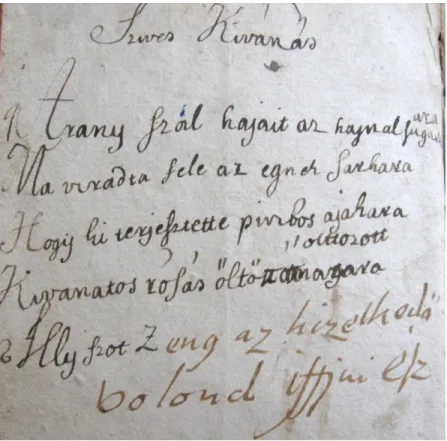 Szives Kivánás
1 Arany szál hajait az hajnal sugara
Ma viradta fele az egnek sarkara
Hogy ki terjesztette piribos ajakara
öltözott
Kivanatos rósás öltö magara
2 Illy szot Zeng az hizelkedö
bolond iffjui esz